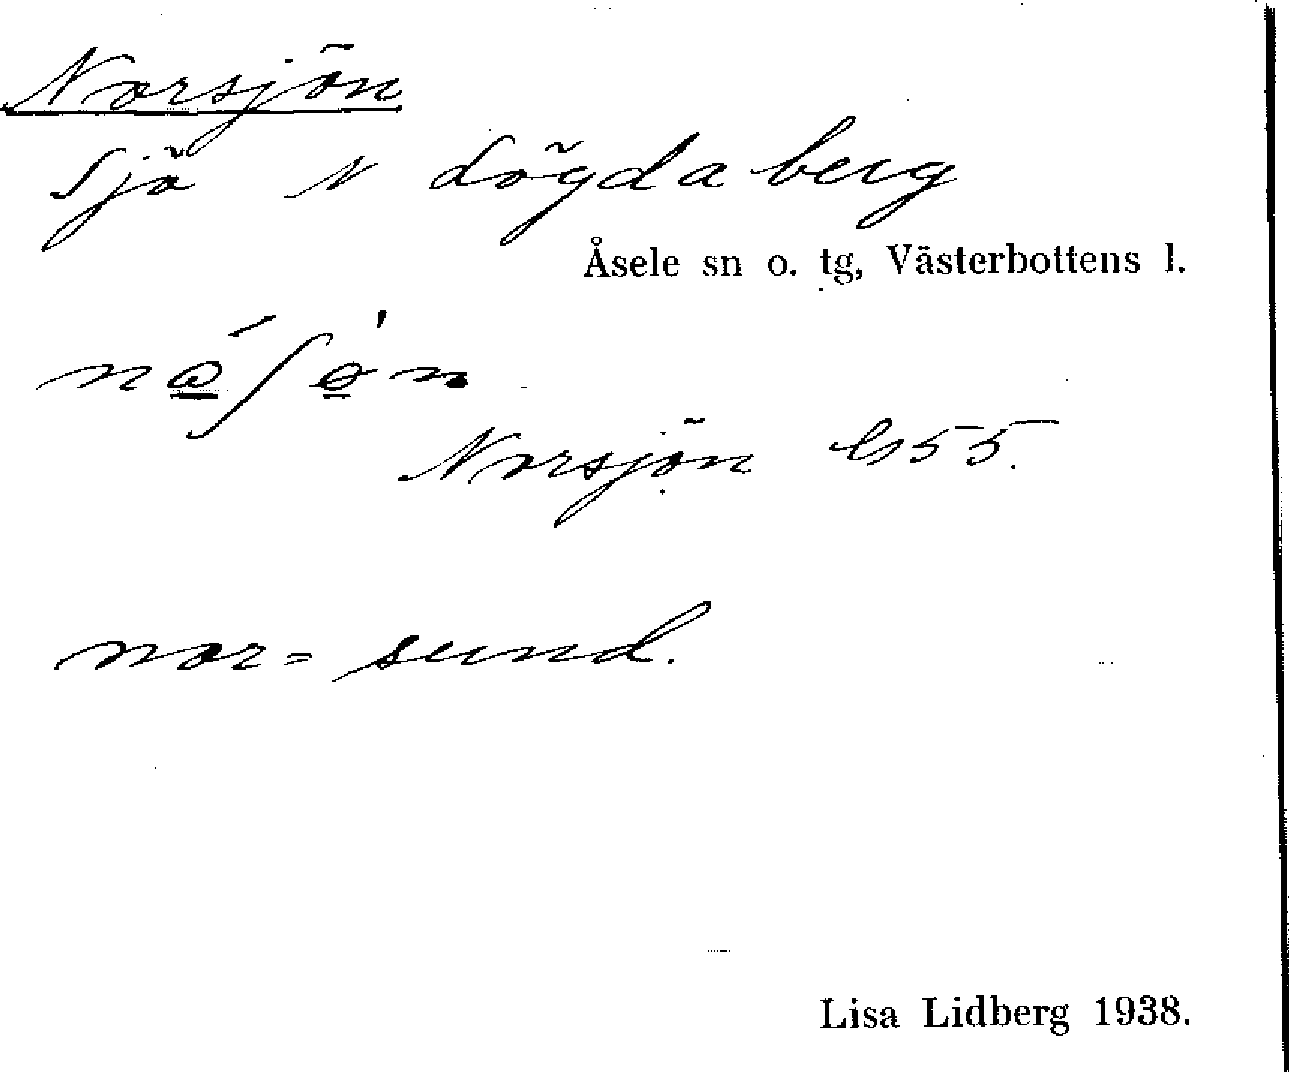 Norsjön
Sjö N Lögdaberg
Åsele sn o. tg, Västerbottens l.
Norsjön Gs 55.
nor = sund.
Lisa Lidberg 1938.